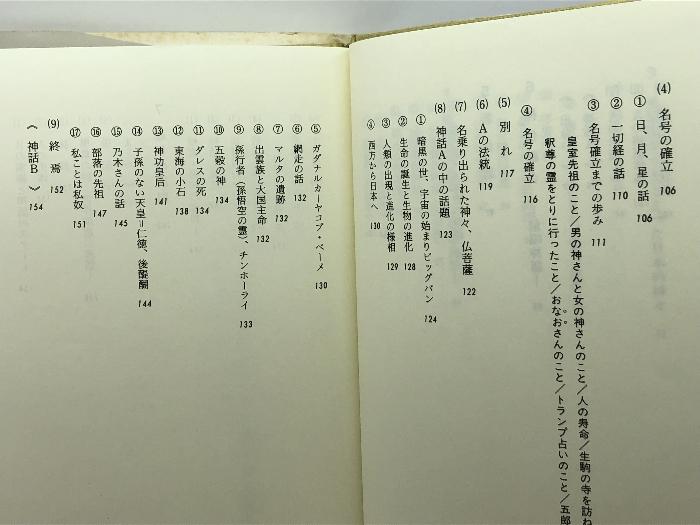 (4) 名号の確立 106
① 日、月、星の話 106
② 一切経の話 110
③ 名号確立までの歩み 111
皇室先祖のこと/男の神さんと女の神さんのこと/人の寿命/生駒の寺を訪ね
釈尊の霊をとりに行ったこと/おなおさんのこと/トランプ占いのこと/五郎
④ 名号の確立 116
(5) 別れ 117
(6) Aの法統 119
(7) 名乗り出られた神々、仏菩薩 122
(8) 神話Aの中の話題 123
① 暗黒の世、宇宙の始まりビッグバン 124
② 生命の誕生と生物の進化 128
③ 人類の出現と進化の様相 129
④ 西方から日本へ 130
⑤ ガダナルカーヤコブ・ベーメ 130
⑥ 網走の話 132
⑦ マルタの遺跡 132
⑧ 出雲族と大国主命 132
⑨ 孫行者(孫悟空の霊)、チンホーライ 133
⑩ 五穀の神 134
⑪ ダレスの死 134
⑫ 東海の小石 138
⑬ 神功皇后 141
⑭ 子孫のない天皇=仁徳、後醍醐 144
⑮ 乃木さんの話 145
⑯ 部落の先祖 147
⑰ 私ことは私奴 151
(9) 終焉 152
《神話B》 154